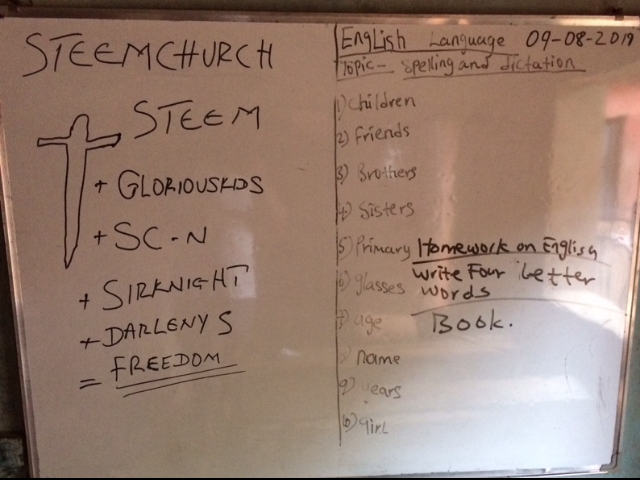 STEEMCHURCH
STEEM
+ GLORIOUSKIDS
+ SC-N
+ SIRKNIGHT
+ DARLENYS
= FREEDOM
English Language 09-08-2019
Topic - Spelling and dictation
1) children
2) Friends
3) Brothers
4) Sisters
5) Primary
6) glasses
7) age
8) name
9) years
10) girl
Homework on English
Write Four letter
words
Book.